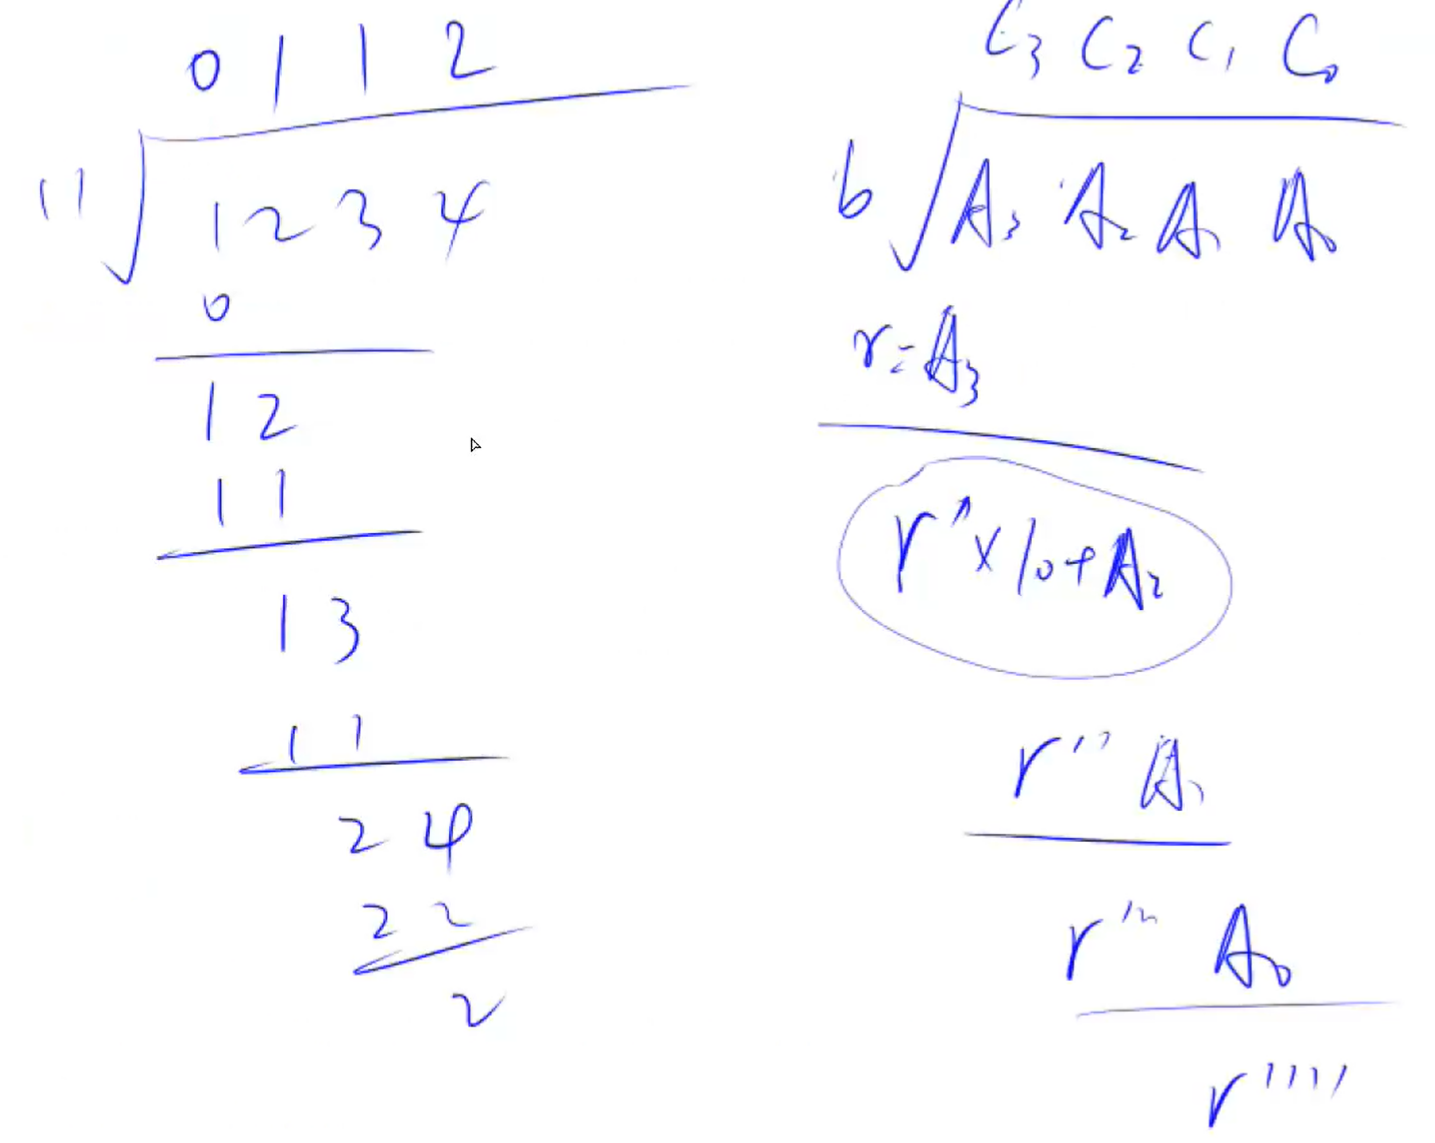 0 1 1 2
11 1 2 3 4
0
1 2
1 1
1 3
1 1
2 4
2 2
2
C3 C2 C1 C0
b A3 A2 A1 A0
r = A3
r' × 10 + A2
r'' A1
r''' A0
r''''